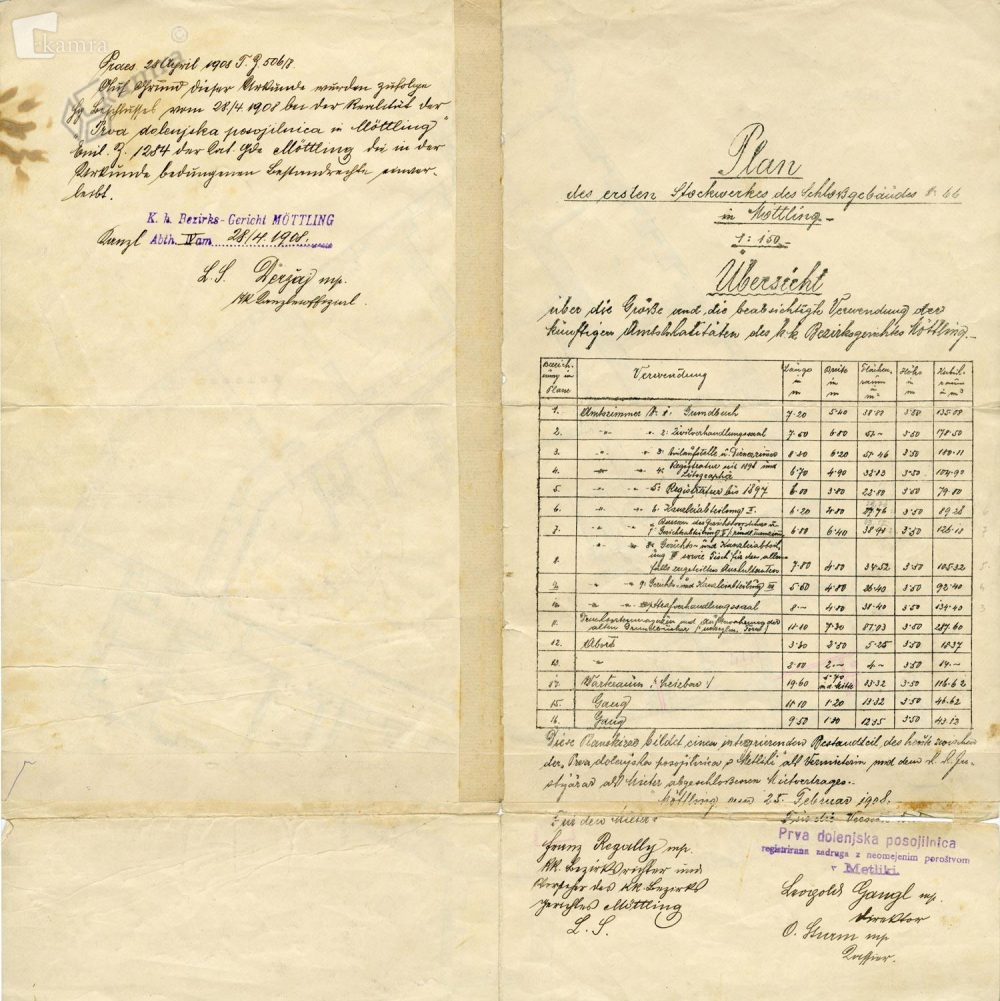 kamra
Praes 28 April 1908 T. Z 506/8.
Auf Grund dieser Urkunde wurden zufolge
hg Beschlusses vom 28/4 1908 bei der Realität der
"Prva dolenjska posojilnica in Möttling"
Einl. Z. 1284 der Cat. Gde Möttling die in der
Urkunde bedungenen Bestandrechte einver-
leibt.
K. k. Bezirks-Gericht MÖTTLING
Kanzl Abth. IV am 28/4 1908.
L. S. Deržaj mp.
kk Kanzleioffizial.
Plan
des ersten Stockwerkes des Schloßgebäudes No 66
in Möttling
1:150
Übersicht
über die Größe und die beabsichtigte Verwendung der
künftigen Amtslokalitäten des k.k. Bezirksgerichtes Möttling.
Bezeich-nung im Plane Verwendung Länge in m Breite in m Flächen-raum m² Höhe in m Kubik-raum in m³
1. Amtszimmer No 1: Grundbuch 7.20 5.40 38.88 3.50
2. " " 2: Zivilverhandlungssaal 7.50 6.80 51.- 3.50 178.50
3. " " 3: Einlaufstelle u. Dienerzimmer 8.30 6.20 51.46 3.50 180.11
4. " " 4: Registratur seit 1898 und Litographie 6.70 4.90 32.83 3.50 104.90
5. " " 5: Registratur bis 1897 6.00 3.80 22.80 3.50 79.80
6. " " 6. Kanzleiabteilung I. 6.20 4.80 29.76 3.50 89.28
7. " " Bureau des Gerichtsvorstehers u. Gerichtsabteilung 6.40 3.50
8. " " 8: Gerichts- und Kanzleiabteilung II sowie Tisch für den allenfalls zugeteilten Auskultanten 7.80 4.80 34.52 3.50 105.32
9. " " 9: Gerichts- und Kanzleiabteilung III 5.60 4.80 26.40 3.50 92.40
10. " " Strafverhandlungssaal 8.- 4.80 38.40 3.50 134.40
11. und Aufbewahrung der alten Grundbücher 11.10 7.30 81.03 3.50 287.60
12. Abort 3.50 2.50 5.25 3.50 18.37
13. " 2.00 2.- 4.- 3.50 14.-
14. Warteraum (heizbar) 19.60 3.50 116.62
15. Gang 11.10 1.20 13.32 3.50 46.62
16. Gang 9.50 1.30 12.35 3.50 43.13
Diese Planskizze bildet einen integrierenden Bestandteil des heute zwischen
der "Prva dolenjska posojilnica v Metliki" als Vermieterin und dem k. k. Ju-
stizärar als Mieter abgeschlossenen Mietvertrages.
Möttling am 25. Februar 1908.
Für den Mieter:
Franz Regally mp.
kk. Bezirksrichter und
Vorsteher des kk. Bezirks
gerichtes Möttling
L. S.
Für die
Prva dolenjska posojilnica
registrirana zadruga z neomejenim poroštvom
v Metliki.
Leopold Gangl mp.
Direktor
O. Sturm mp
Kassier.